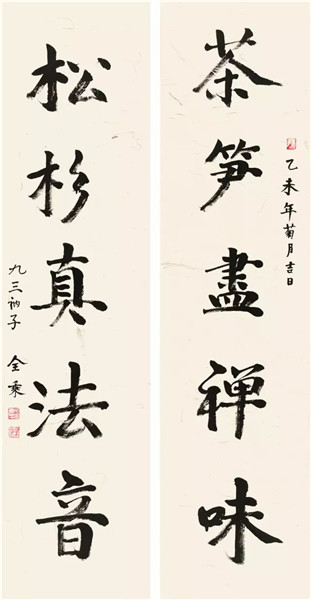 茶笋盡禅味
乙未年菊月吉日
松杉真法音
九三衲子
全乘